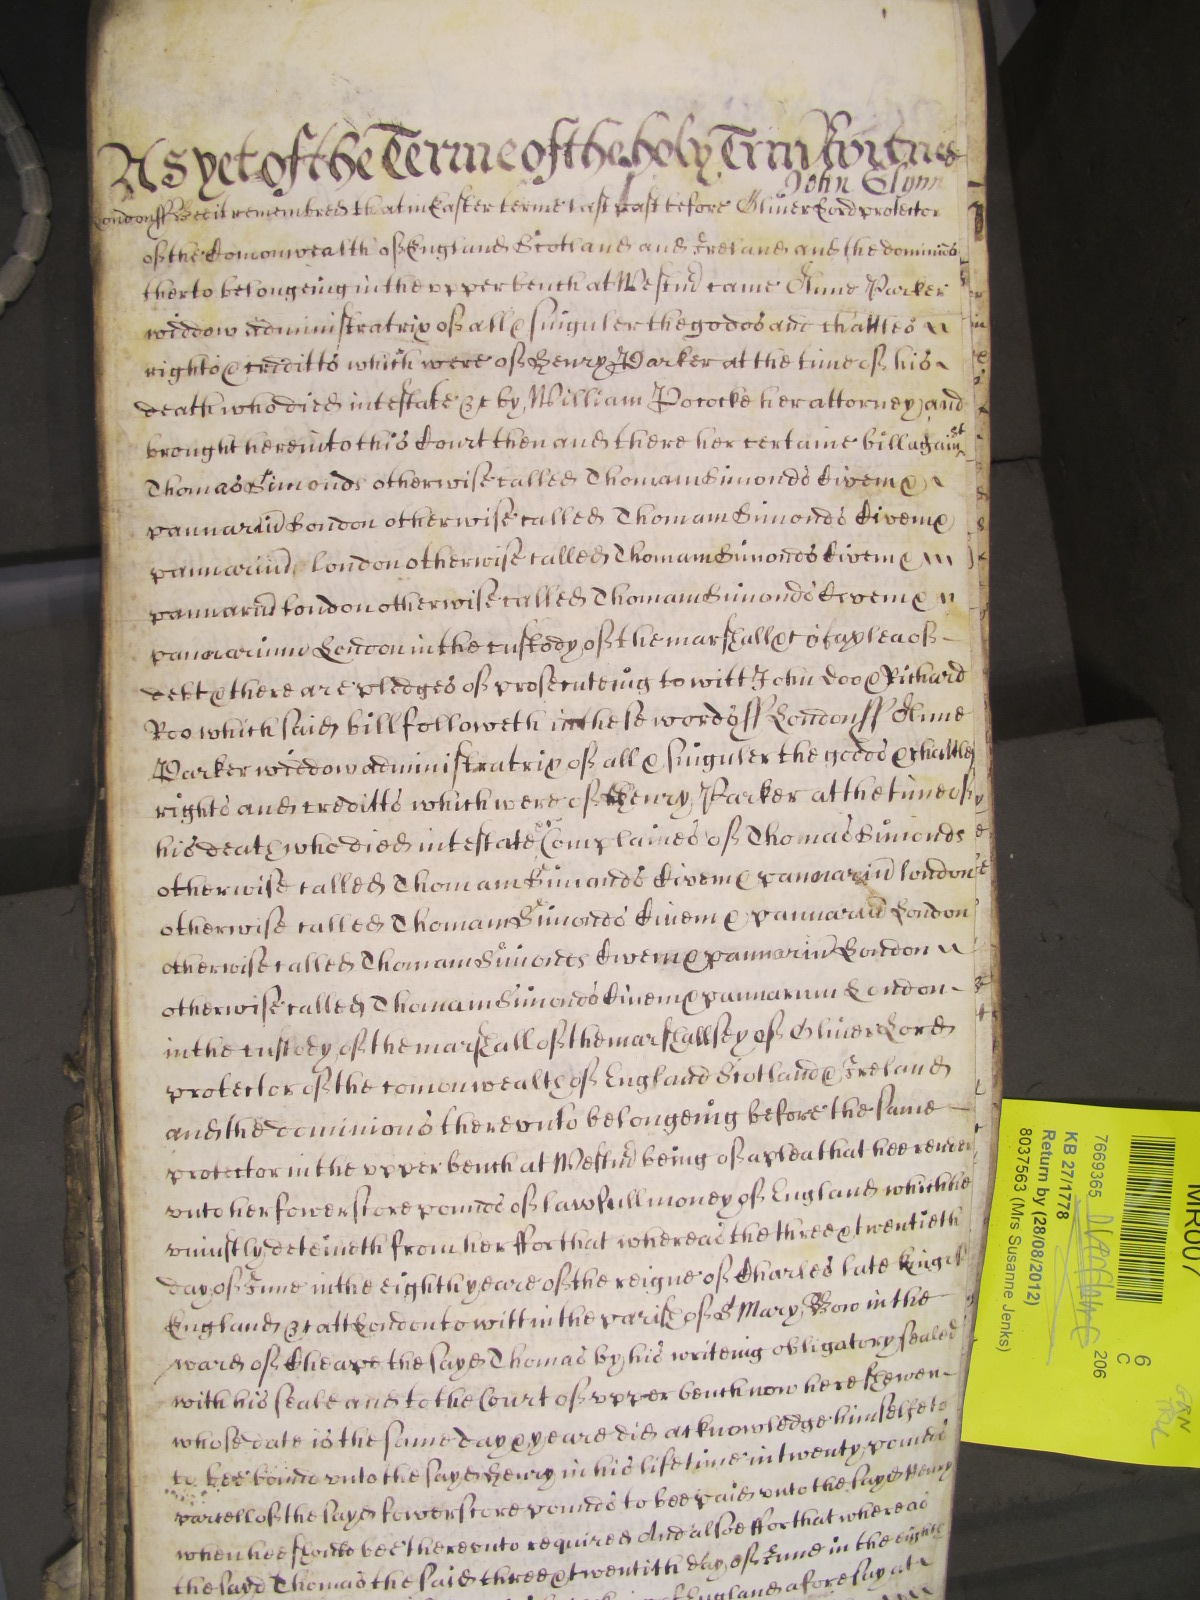 As yet of the Terme of the holy Trin Witnes
John Glynn
Londonss Bee it remembred that in Easter terme last past before Oliver Lord protector
of the Comonwealth of England Scotland and Ireland and the dominions
therto belongeing in the upper bench at Westmr came Anne Parker
widdow administratrix of all & singuler the goods and chattles
rights & creditts which were of Henry Parker at the time of his
death who died intestate &c by William Pococke her attorney and
brought here into this Court then and there her certaine bill against
Thomas Simonds otherwise called Thomam Simonds Civem &
pannariu London otherwise called Thomam Simonds Civem &
pannariu london otherwise called Thomam Simonds Civem &
pannariu london otherwise called Thomam Simonds Civem &
pannarium London in the custody of the marshall &c of a plea of
debt & there are pledges of prosecuteing to witt John Doo & Richard
Roo which said bill followeth in these words ss London ss Anne
Parker widdow administratrix of all & singuler the goods & chattles
rights and creditts which were of Henry Parker at the time of
his death who died intestate &c Complaines of Thomas Simonds
otherwise called Thomam Simonds Civem & pannariu london
otherwise called Thomam Simonds Civem & pannariu London
otherwise called Thomam Simonds Civem & pannariu London
otherwise called Thomam Simonds Civem & pannarium London
in the custody of the marshall of the marshallsey of Oliver Lord
protector of the comonwealth of England Scotland & Ireland
and the dominions thereunto belongeing before the same
protector in the upper bench at Westmr being of a plea that hee render
unto her fower score pounds of lawfull money of England which hee
uniustly deteineth from her ffor that whereas the three & twentieth
day of June in the eighth yeare of the reigne of Charles late king of
England &c att London to witt in the parish of St Mary Bow in the
ward of Cheape the sayd Thomas by his writeing obligatory sealed
with his seale and to the Court of upper bench now here shewen
whose date is the same day & yeare did acknowledge himselfe to
to bee bound unto the sayd Henry in his life time in twenty pounds
parcell of the sayd fower score pounds to bee paid unto the sayd Henry
when hee should bee thereunto required And alsoe ffor that whereas
the sayd Thomas the said three & twentith day of June in the eighth
of England aforesay at
MR007
6
C
7669365
206
KB 27/1778
Return by (28/08/2012)
8037563 (Mrs Susanne Jenks)